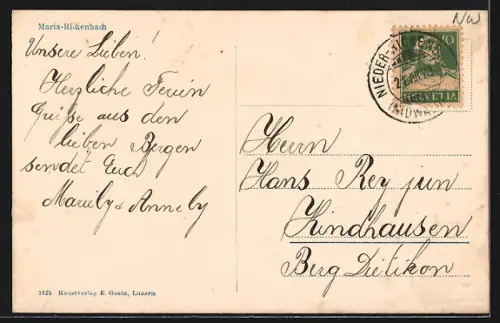 Maria-Rickenbach
NW
Unsere Lieben!
Herzliche Ferien
Grüße aus den
lieben Bergen
sendet Euch
Marily & Annely
10
HELVETIA
NIEDER-
(NIDWA
Herrn
Hans Rey jun
Kindhausen
Berg Dietikon
Kunstverlag E. Goetz, Luzern